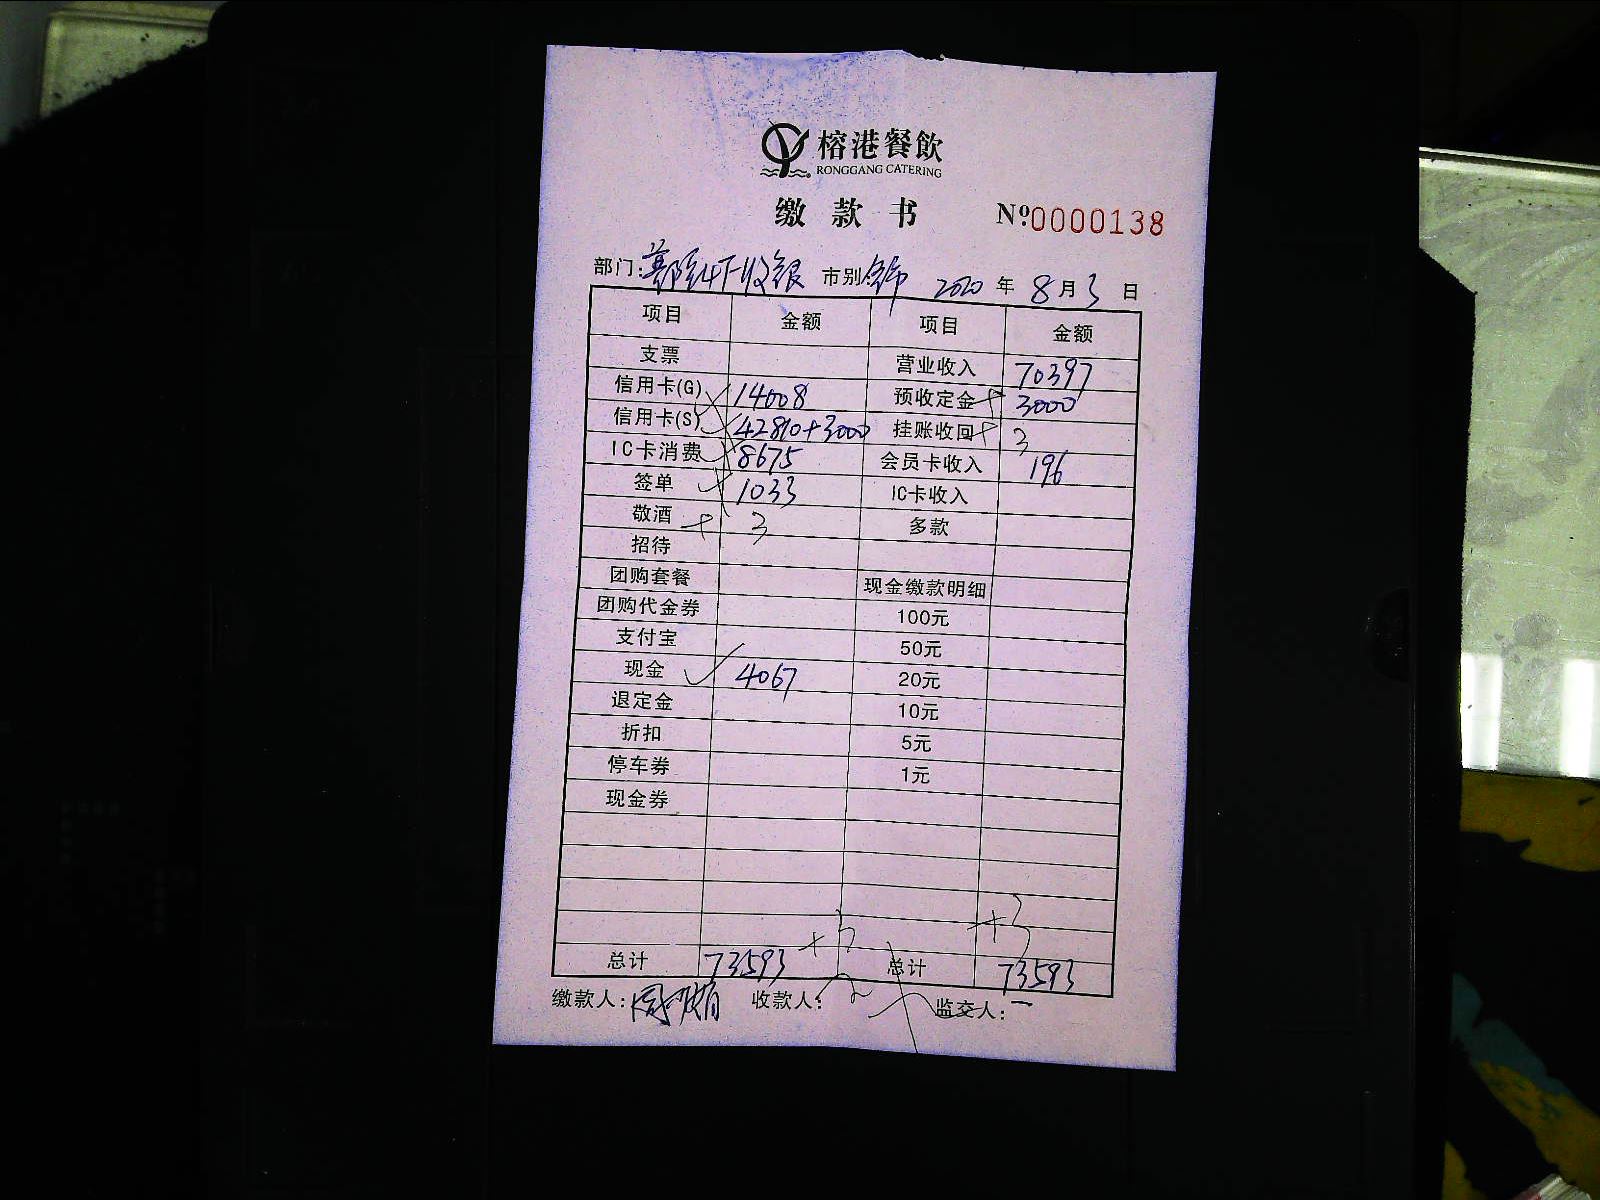 榕港餐飲
RONGGANG CATERING
缴款书 №0000138
部门: 收银 市别: 2020年8月3日
项目 金额 项目 金额
支票 营业收入 70397
信用卡(G) 14008 预收定金 + 3000
信用卡(S) 42810+3000 挂账收回 + 3
IC卡消费 8675 会员卡收入 196
签单 1033 IC卡收入
敬酒 + 3 多款
招待
团购套餐 现金缴款明细
团购代金券 100元
支付宝 50元
现金 4067 20元
退定金 10元
折扣 5元
停车券 1元
现金券
+3 +3
总计 73593 总计 73593
缴款人: 收款人: 监交人: